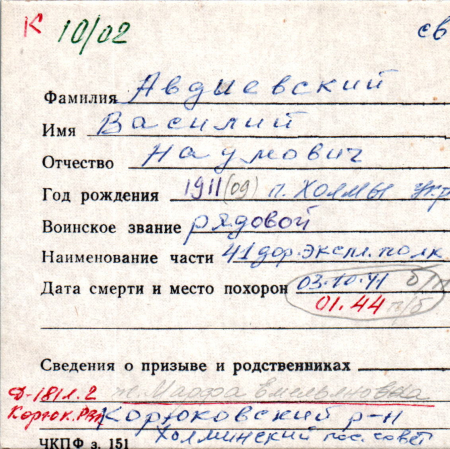 К 10/02 св
Фамилия Авдиевский
Имя Василий
Отчество Наумович
Год рождения 1911 (09) п. Холмы Укр
Воинское звание рядовой
Наименование части 41 дор. экспл. полк
Дата смерти и место похорон 03.10.41 б/п
01.44 п/б
Сведения о призыве и родственниках
Д-181 л.2 ж. Марфа Емельяновна
Корюк. РВК Корюковский р-н
ЧКПФ з. 151 Холминский пос. совет